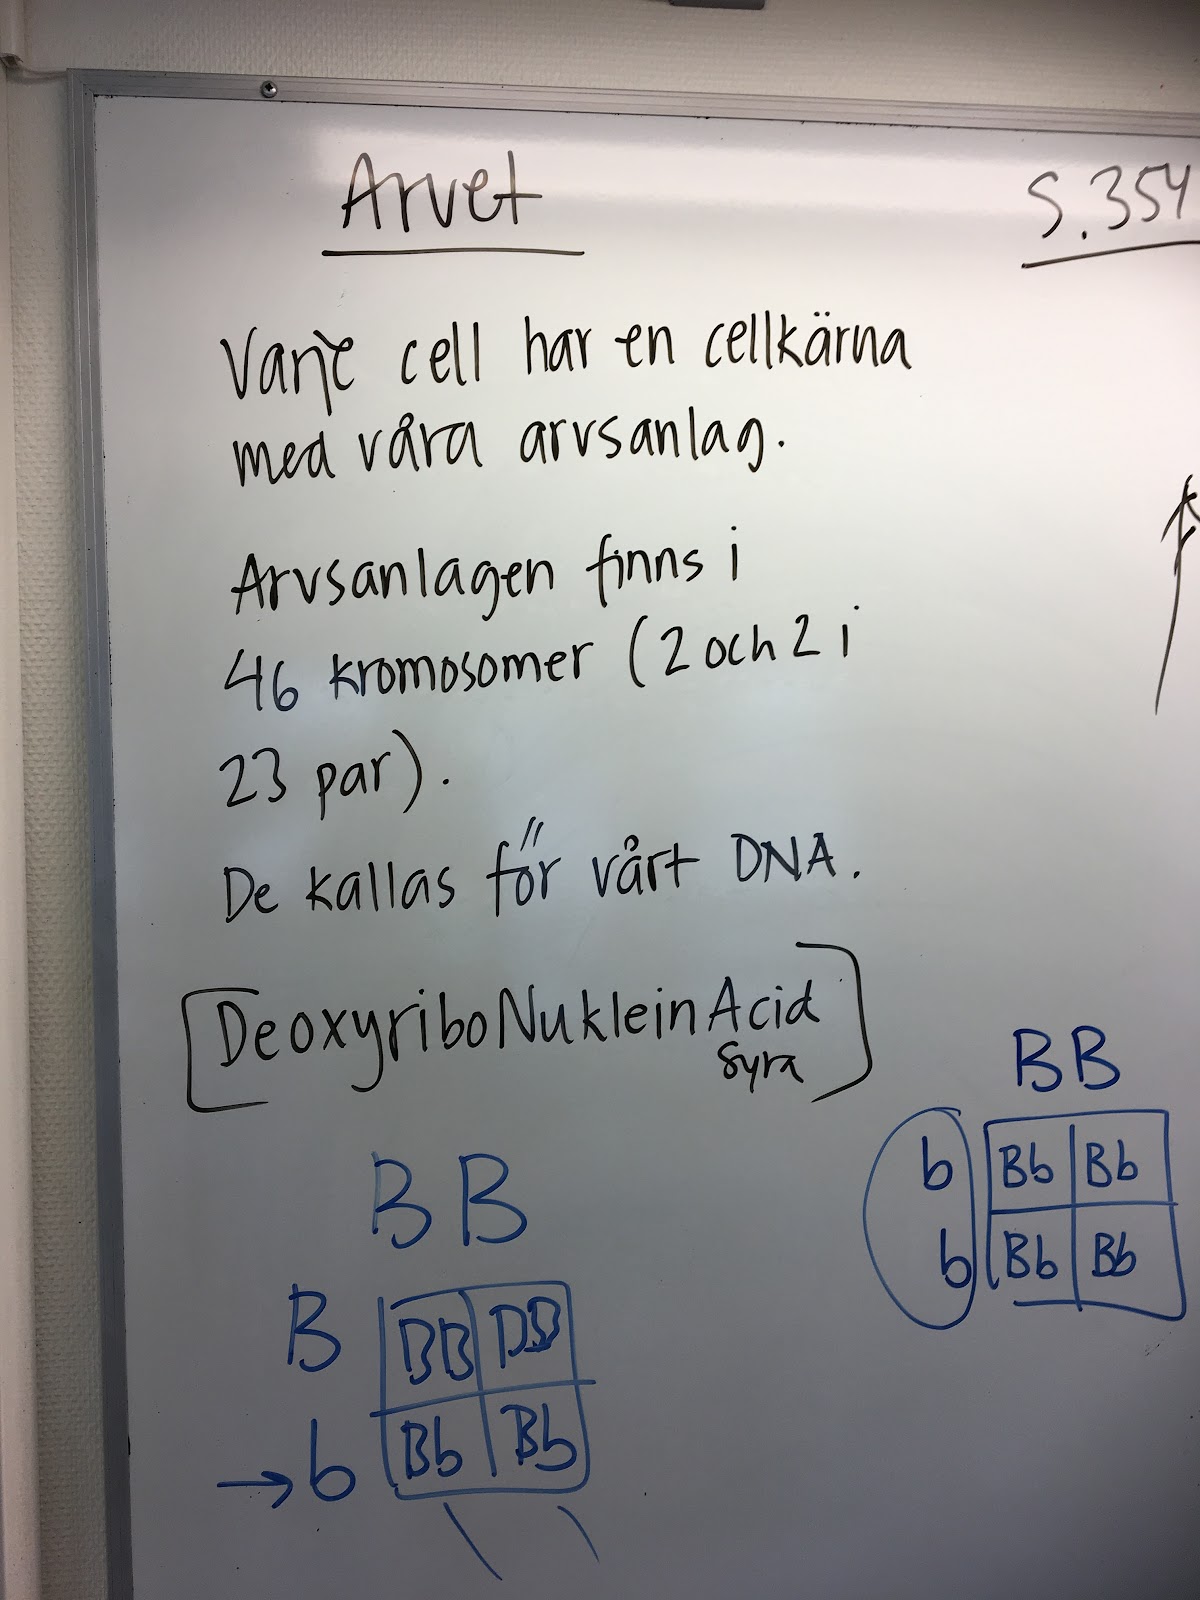 Arvet
S. 354
Varje cell har en cellkärna
med våra arvsanlag.
Arvsanlagen finns i
46 kromosomer (2 och 2 i
23 par).
De kallas för vårt DNA.
[DeoxyriboNukleinAcid]
syra
B B
b Bb Bb
b Bb Bb
B B
B BB BB
→ b Bb Bb